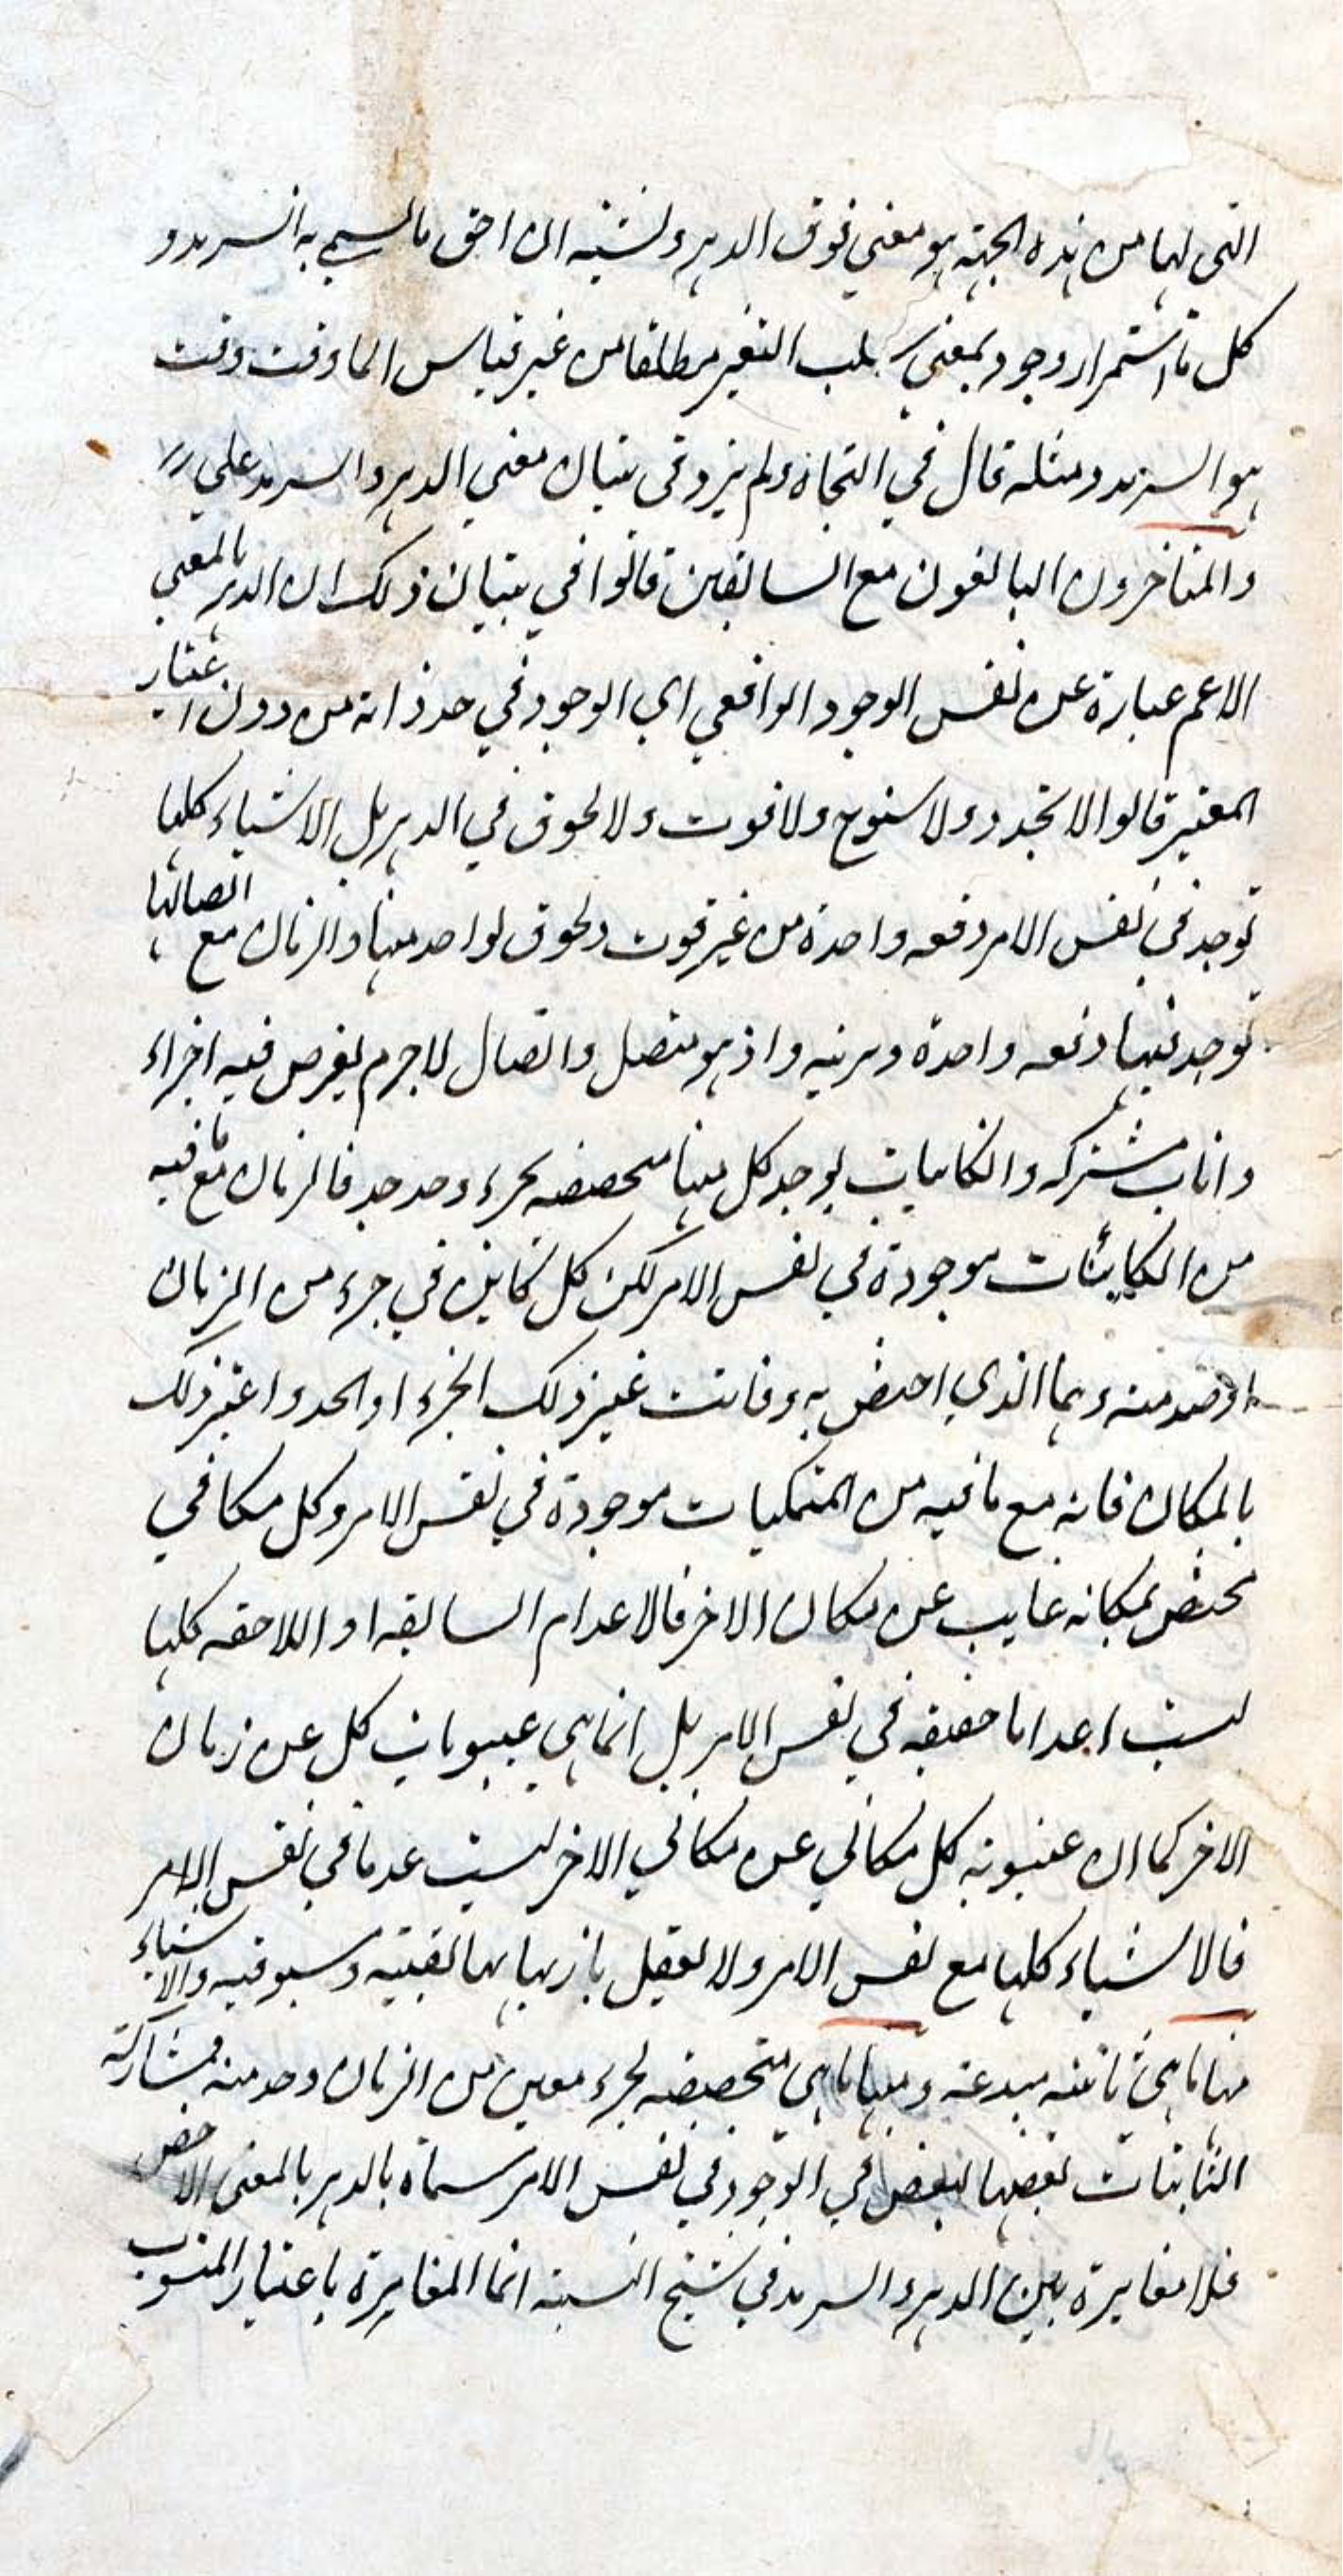 التى لها من هذه الجهة هو معنى فوق الدهر ولشبه ان احق ما يسمى به السرمد و
كل ما استمرار وجود بمعنى سلب التغير مطلقا من غير قياس الى وقت وقت
هو السرمد ومثله قال في النجاة ولم يزد في بيان معنى الدهر والسرمد على
والمتاخرون البالغون مع السابقين قالوا في بيان ذلك ان الدهر بالمعنى
الاعم عبارة عن نفس الوجود الواقعي اي الوجود في حد ذاته من دون اعتبار
المغير قالوا لا تجدد ولا سنوح ولا فوت ولا لحوق في الدهر بل الاشياء كلها
توجد في نفس الامر دفعه واحدة من غير فوت ولحوق لواحد منها والزمان مع اتصالها
توجد فيها دفعه واحدة دهريه واذ هو متصل واتصال لاجرم يفرض فيه اجزاء
وانات مشتركه والكاينات يوجد كل منها متخصصه بجزء وحد حد فالزمان مع ما فيه
من الكاينات موجودة في نفس الامر لكن كل كاين في جزء من الزمان
او حد منه وهما الذي اختص به وفاتت غير ذلك الجزء او الحد واعتبر ذلك
بالمكان فانه مع ما فيه من المتمكنات موجودة في نفس الامر وكل مكاني
مختص بمكانه غايب عن مكان الاخر فالاعدام السابقه او اللاحقه كلها
ليست اعداما حقيقه في نفس الامر بل انما هي غيبوبات كل عن زمان
الاخر كما ان غيبوبة كل مكاني عن مكاني الاخر ليست عدما في نفس الامر
فالاشياء كلها مع نفس الامر ولا يعقل بازيها بها لقبته ومسبوقيه والاشياء
منها ما هي ثابته مبدعه ومنها ما هي متخصصه بجزء معين من الزمان وحد منه فمشاركة
الثابتات بعضها لبعض في الوجود في نفس الامر مسماة بالدهر بالمعنى الاخص
فلا مغايرة بين الدهر والسرمد في سنخ النسبة انما المغايرة باعتبار المنسوب